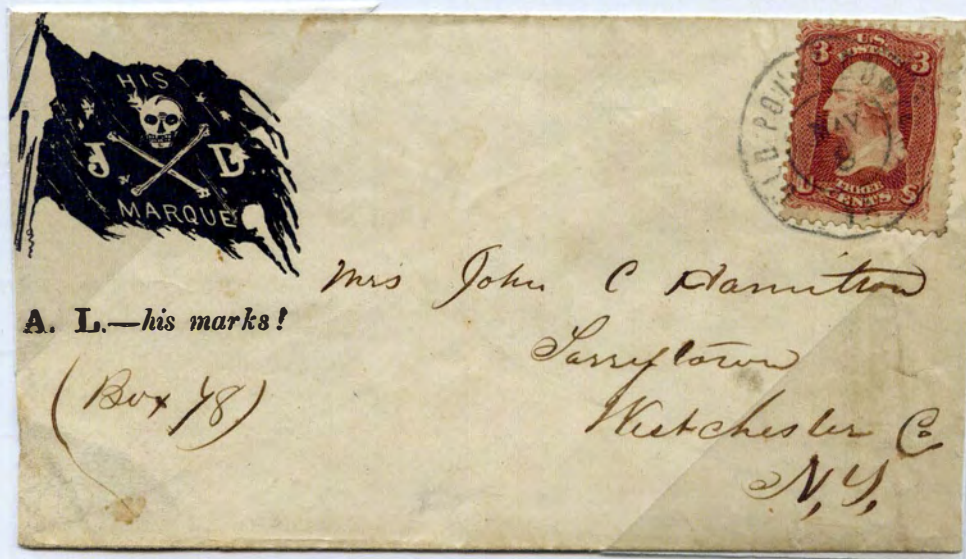 HIS
J D
MARQUE
A. L.—his marks!
(Box 48)
3 U.S. POSTAGE 3
U THREE CENTS S
OLD POIN
Mrs John C Hamilton
Tarrytown
Westchester Co
N,Y,